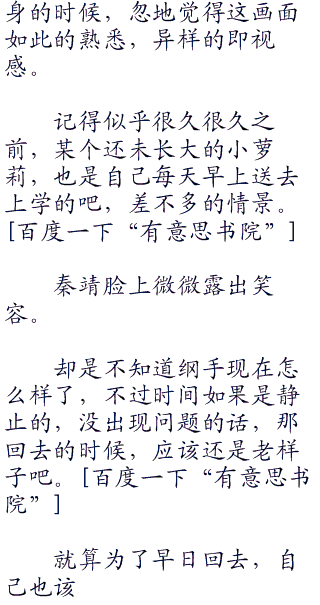 身的时候，忽地觉得这画面
如此的熟悉，异样的即视
感。
记得似乎很久很久之
前，某个还未长大的小萝
莉，也是自己每天早上送去
上学的吧，差不多的情景。
[百度一下“有意思书院”]
秦靖脸上微微露出笑
容。
却是不知道纲手现在怎
么样了，不过时间如果是静
止的，没出现问题的话，那
回去的时候，应该还是老样
子吧。[百度一下“有意思书
院”]
就算为了早日回去，自
己也该